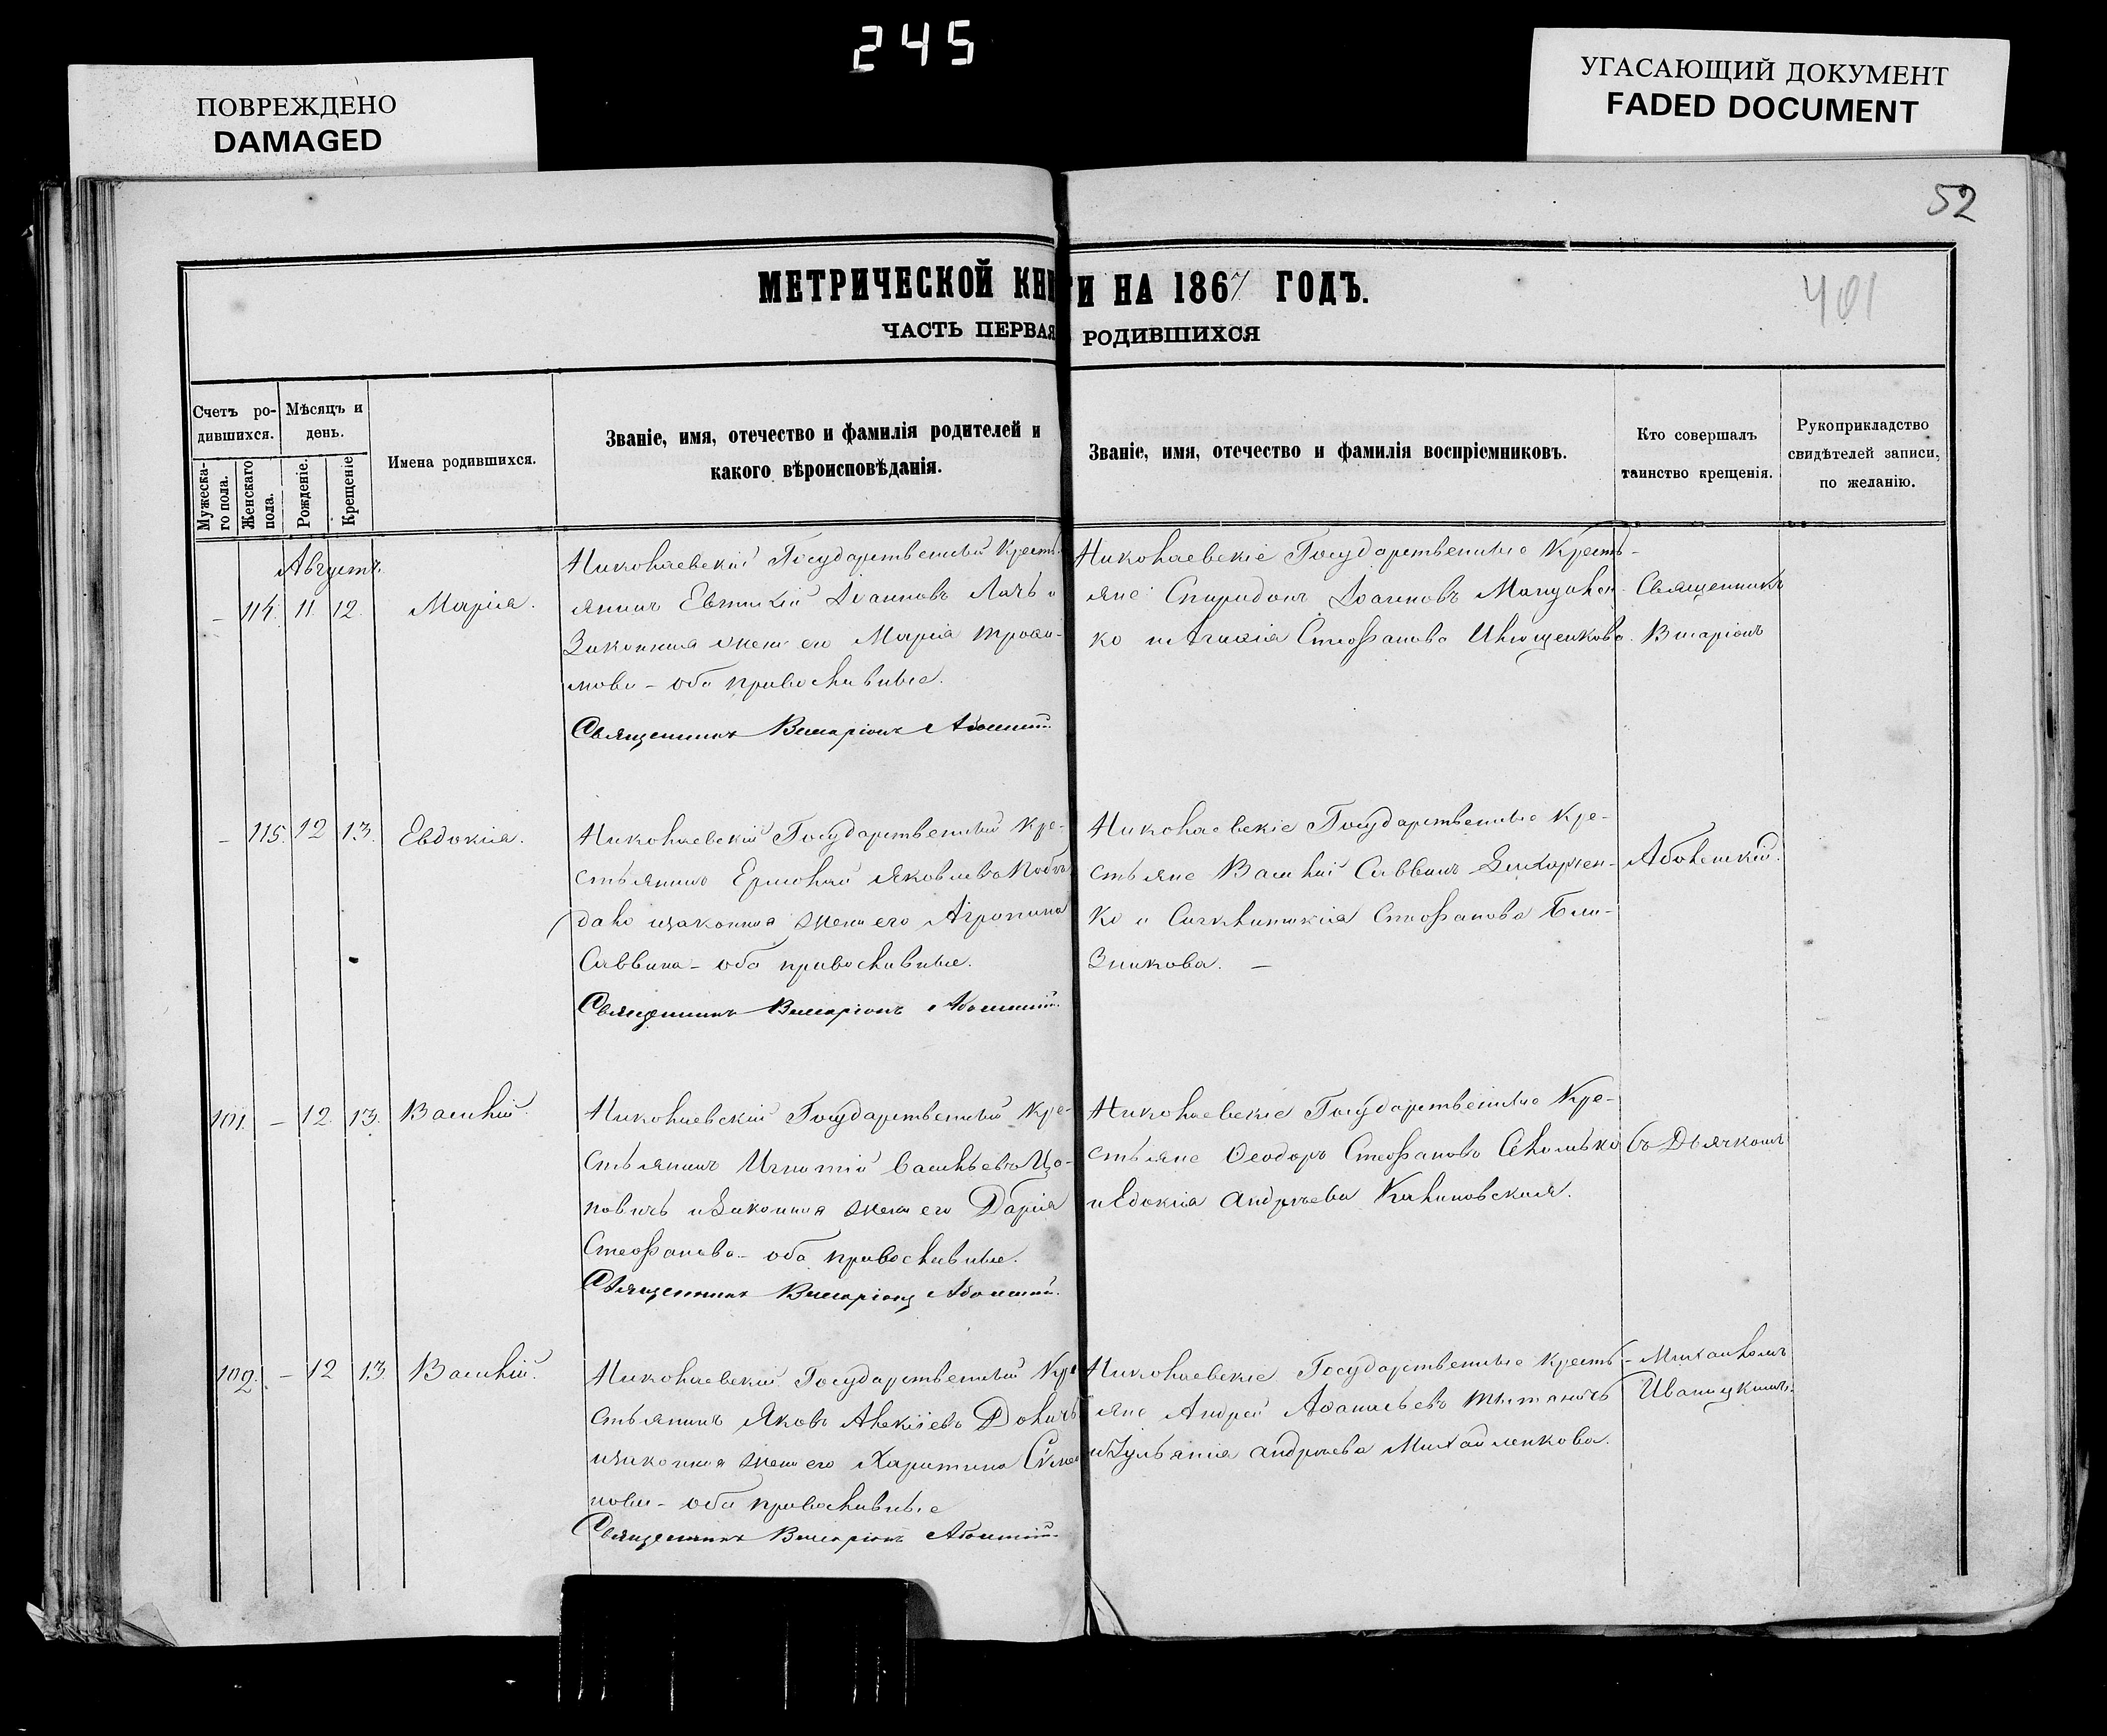 245
ПОВРЕЖДЕНО
DAMAGED
УГАСАЮЩИЙ ДОКУМЕНТ
FADED DOCUMENT
52
401
МЕТРИЧЕСКОЙ КНИГИ НА 1867 ГОДЪ.
ЧАСТЬ ПЕРВАЯ РОДИВШИХСЯ
Счетъ ро-
дившихся.
Мужеска-
го пола.
Женскаго
пола.
Мѣсяцъ и
день.
Рожденіе.
Крещеніе
Имена родившихся.
Званіе, имя, отечество и фамилія родителей и
какого вѣроисповѣданія.
Званіе, имя, отечество и фамилія воспріемниковъ.
Кто совершалъ
таинство крещенія.
Рукоприкладство
свидѣтелей записи,
по желанію.
Августъ.
– 114. 11. 12. Марія.
Николаевскій Государственный Кресть-
янинъ Евтихій Іоанновъ и
Законная жена его Марія Трофи-
мова – оба православные.
Священникъ Виссаріонъ
Николаевскіе Государственные Кресть-
яне Спиридонъ Іоанновъ
ко и Стефанова
Священникъ
Виссаріонъ
– 115. 12 13. Евдокія.
Николаевскій Государственный Кре-
стьянинъ Ермолай Яковлевъ
и законная жена его Агрипина
Саввина – оба православные.
Священникъ Виссаріонъ
Николаевскіе Государственные Кре-
стьяне Василій Саввинъ Захарчен-
ко и Синклитикія Стефанова Бли-
знюкова. –
101. – 12. 13. Василій.
Николаевскій Государственный Кре-
стьянинъ Игнатій Васильевъ По-
повичъ и Законная жена его Дарія
Стефанова – оба православные.
Священникъ Виссаріонъ
Николаевскіе Государственные Кре-
стьяне Ѳеодоръ Стефановъ
и Евдокія Андреева Калиновская.
съ Дьячкомъ
102. – 12 13. Василій.
Николаевскій Государственный Кре-
стьянинъ Яковъ Алексіевъ
и законная жена его Харитина
нова – оба православные
Священникъ Виссаріонъ
Николаевскіе Государственные Кресть-
яне Андрей Аѳанасьевъ
и Іульянія Андреева Михайленкова.
Михаиломъ
Иваницкимъ.